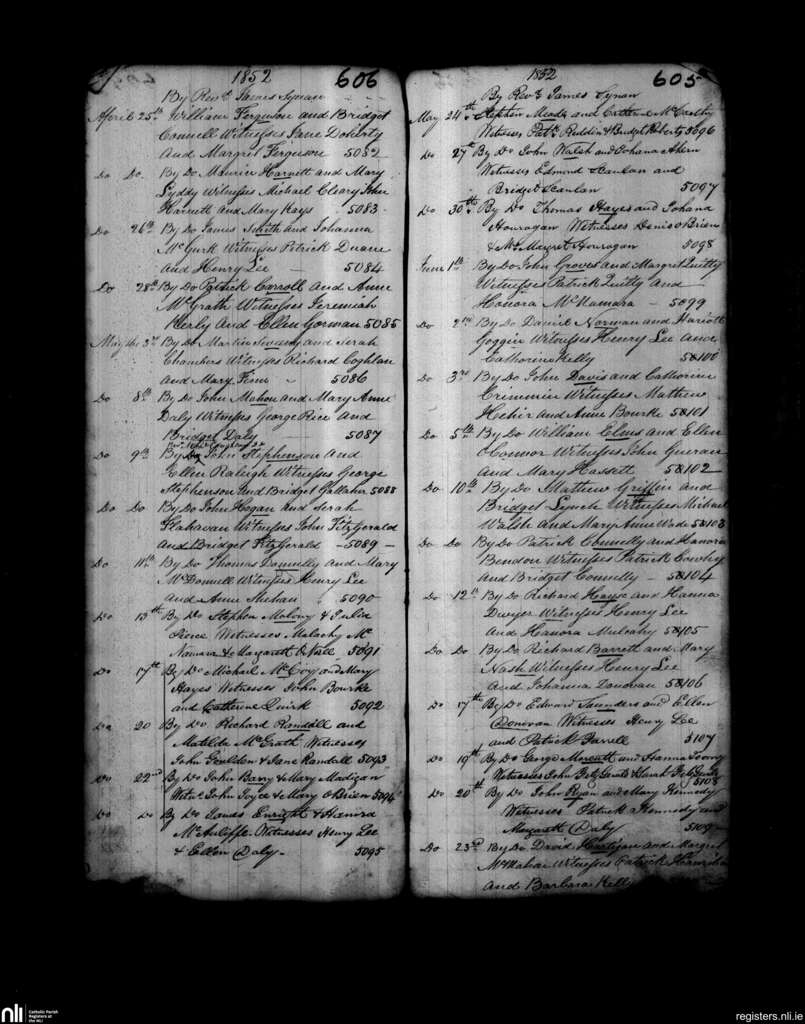 1852 606
By Revd. James Tynan
April 25th William Ferguson and Bridget
Connell Witnesses Jane Doherty
And Margret Ferguson 5082
Do Do. By Do Maurice Harnett and Mary
Lyddy Witnesses Michael Cleary John
Harnett and Mary Hays 5083
Do 26th By Do James Smith and Johanna
McGurk Witnesses Patrick Duane
and Henry Lee — 5084
Do 28th By Do Patrick Carroll and Anne
McGrath Witnesses Jeremiah
Kerby And Ellen Gorman 5085
May the 3rd By Do Martin and Serah
Chambers Witnesses Richard Coghlan
and Mary Finn 5086
Do 8th By Do John Mahon and Mary Anne
Daly Witnesses George Rice And
Bridget Daly — 5087
Do 9th By John Stephenson and
Ellen Raleigh Witnesses George
Stephenson and Bridget Gallaher 5088
Do Do By Do John Hogan and Serah
Flahavan Witnesses John Fitzgerald
and Bridget Fitzgerald – 5089 –
Do 11th By Do Thomas Donnelly and Mary
McDonnell Witnesses Henry Lee
and Anne Shehan 5090
Do 13th By Do Stephen Malony & Julia
Peirce Witnesses Malachy Mc
Namara & Margarett O Neill 5091
Do 17th By Do Michael McCoy and Mary
Hayes Witnesses John Bourke
and Catherine Quirk 5092
Do 20 By Do Richard Randall and
Matilde McGrath Witnesses
John Goulden & Jane Randall 5093
Do 22nd By Do John Barry & Mary Madigan
Witns. John Joyce & Mary O'Brien 5094
Do Do By Do James Enright & Hanora
McAuliffe Witnesses Henry Lee
& Ellen Daly – 5095
1852 605
By Revd. James Tynan
May 24th Stephen Meade and Catherine McCarthy
Witness Patk. Ruddin & Bridget Roberts 5096
Do 27th By Do John Walsh and Johana Ahern
Witnesses Edmond Scanlan and
Bridget Scanlan 5097
Do 30th By Do Thomas Hayes and Johana
Houragan Witnesses Denis O Brien
& Margret Houragan 5098
June 1st By Do John Groves and Margret Quilty
Witnesses Patrick Quilty and
Honora McNamara – 5099
Do 2nd By Do Daniel Norman and Hariott
Goggin Witnesses Henry Lee and
Catherine Kelly 5100
Do 3rd By Do John Davis and Catherine
Crimmin Witnesses Mathew
Hehir and Anne Bourke 5101
Do 5th By Do William Elms and Ellen
O'Connor Witnesses John Gueran
and Mary Hassett 5102
Do 10th By Do Mathew Griffin and
Bridget Lynch Witnesses Michael
Walsh and Mary Anne Wade 5103
Do Do By Do Patrick Connelly and Hanora
Bendon Witnesses Patrick Cowhy
and Bridget Connelly – 5104
Do 12th By Do Richard Hayse and Hanna
Dwyer Witnesses Henry Lee
and Hanora Mulcahy 5105
Do Do By Do Richard Barrett and Mary
Nash Witnesses Henry Lee
and Johanna Donovan 5106
Do 17th By Do Edward Saunders and Ellen
Donovan Witnesses Henry Lee
and Patrick Farrell 5107
Do 19th By Do George Meredith and Hanna
Witnesses John & Sarah 5108
Do 20th By Do John Ryan and Mary Kennedy
Witnesses Patrick Kennedy and
Margarett Daly 5109
Do 23rd By Do David Hartigan and Margret
McMahan Witnesses Patrick
and Barbara Kelly
nli
Catholic Parish
Registers at
the NLI
registers.nli.ie